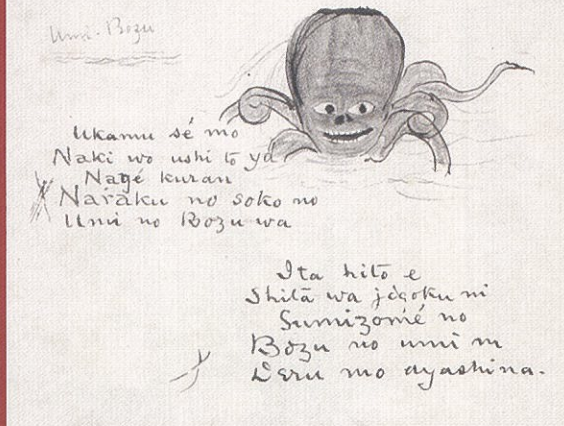 Umi-Bozu
Ukamu sé mo
Naki wo ushi to ya
Nagé kuran
Naraku no soko no
Umi no Bozu wa
Ita hito e
Shita wa jigoku ni
Sumizomé no
Bozu no umi ni
Deru mo ayashina.